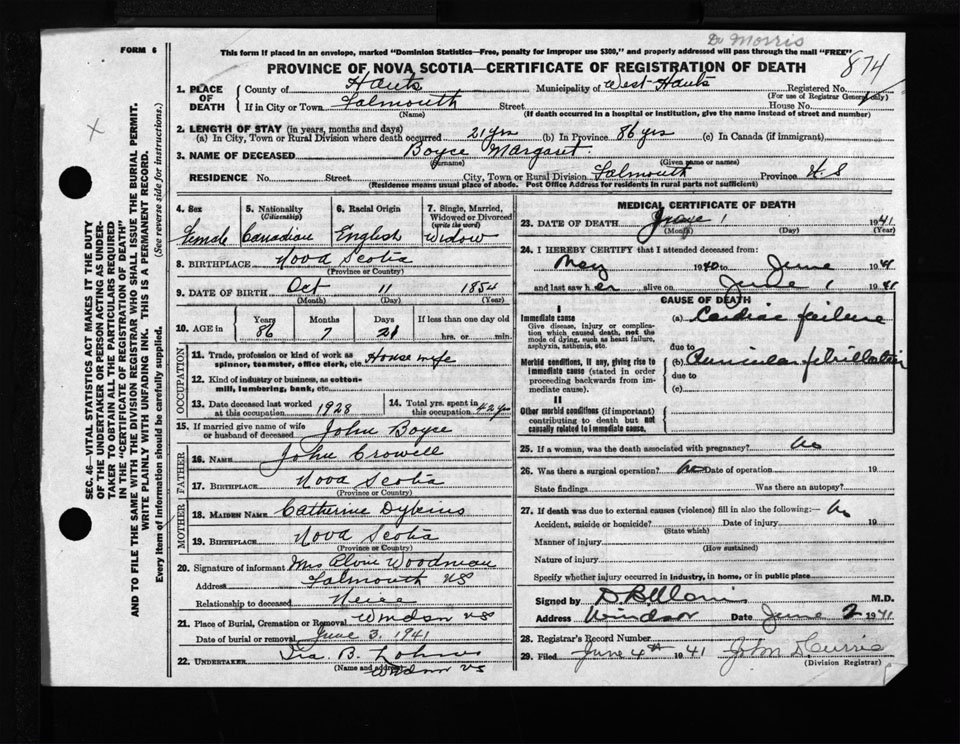 Dr Morris
FORM 6
This form if placed in an envelope, marked "Dominion Statistics—Free, penalty for improper use $300," and properly addressed will pass through the mail "FREE"
874
PROVINCE OF NOVA SCOTIA—CERTIFICATE OF REGISTRATION OF DEATH
1. PLACE OF DEATH
County of Hants Municipality of West Hants Registered No.
(For use of Registrar General only)
If in City or Town Falmouth Street House No.
(Name) (If death occurred in a hospital or institution, give the name instead of street and number)
2. LENGTH OF STAY (in years, months and days)
(a) In City, Town or Rural Division where death occurred 21 yrs (b) In Province 86 yrs (c) In Canada (if immigrant)
3. NAME OF DECEASED Boyce Margaret
(Surname) (Given name or names)
RESIDENCE No. Street City, Town or Rural Division Falmouth Province N.S
(Residence means usual place of abode. Post Office Address for residents in rural parts not sufficient)
4. Sex 5. Nationality (Citizenship) 6. Racial Origin 7. Single, Married, Widowed or Divorced (write the word)
Female Canadian English Widow
8. BIRTHPLACE Nova Scotia
(Province or Country)
9. DATE OF BIRTH Oct 11 1854
(Month) (Day) (Year)
10. AGE in Years Months Days If less than one day old
86 7 21 hrs. or min.
OCCUPATION
11. Trade, profession or kind of work as spinner, teamster, office clerk, etc. Housewife
12. Kind of industry or business, as cotton-mill, lumbering, bank, etc.
13. Date deceased last worked at this occupation 1928
14. Total yrs. spent in this occupation 42 yrs
15. If married give name of wife or husband of deceased John Boyce
FATHER
16. NAME John Crowell
17. BIRTHPLACE Nova Scotia
(Province or Country)
MOTHER
18. MAIDEN NAME Catherine
19. BIRTHPLACE Nova Scotia
(Province or Country)
20. Signature of informant Mrs Woodman
Address Falmouth NS
Relationship to deceased Neice
21. Place of Burial, Cremation or Removal Windsor NS
Date of burial or removal June 3, 1941
22. UNDERTAKER Ira B. Lohnes
(Name and address) Windsor NS
MEDICAL CERTIFICATE OF DEATH
23. DATE OF DEATH June 1 1941
(Month) (Day) (Year)
24. I HEREBY CERTIFY that I attended deceased from:
May 1940 to June 1941
and last saw her alive on June 1 1941
CAUSE OF DEATH
I
Immediate cause
Give disease, injury or complication which caused death, not the mode of dying, such as heart failure, asphyxia, asthenia, etc.
(a) Cardiac failure
due to
Morbid conditions, if any, giving rise to immediate cause (stated in order proceeding backwards from immediate cause).
(b) Auricular fibrillation
due to
(c)
II
Other morbid conditions (if important) contributing to death but not causally related to immediate cause.
25. If a woman, was the death associated with pregnancy? No
26. Was there a surgical operation? No Date of operation 19
State findings Was there an autopsy?
27. If death was due to external causes (violence) fill in also the following:— No
Accident, suicide or homicide? Date of injury 19
(State which)
Manner of injury
(How sustained)
Nature of injury
Specify whether injury occurred in industry, in home, or in public place
Signed by M.D.
Address Windsor Date June 2 1941
28. Registrar's Record Number
29. Filed June 4th 1941 John D Currie
(Division Registrar)
SEC. 46—VITAL STATISTICS ACT MAKES IT THE DUTY OF THE UNDERTAKER OR PERSON ACTING AS UNDERTAKER TO OBTAIN ALL THE PARTICULARS REQUIRED IN THE "CERTIFICATE OF REGISTRATION OF DEATH" AND TO FILE THE SAME WITH THE DIVISION REGISTRAR WHO SHALL ISSUE THE BURIAL PERMIT.
WRITE PLAINLY WITH UNFADING INK. THIS IS A PERMANENT RECORD.
Every item of information should be carefully supplied. (See reverse side for instructions.)